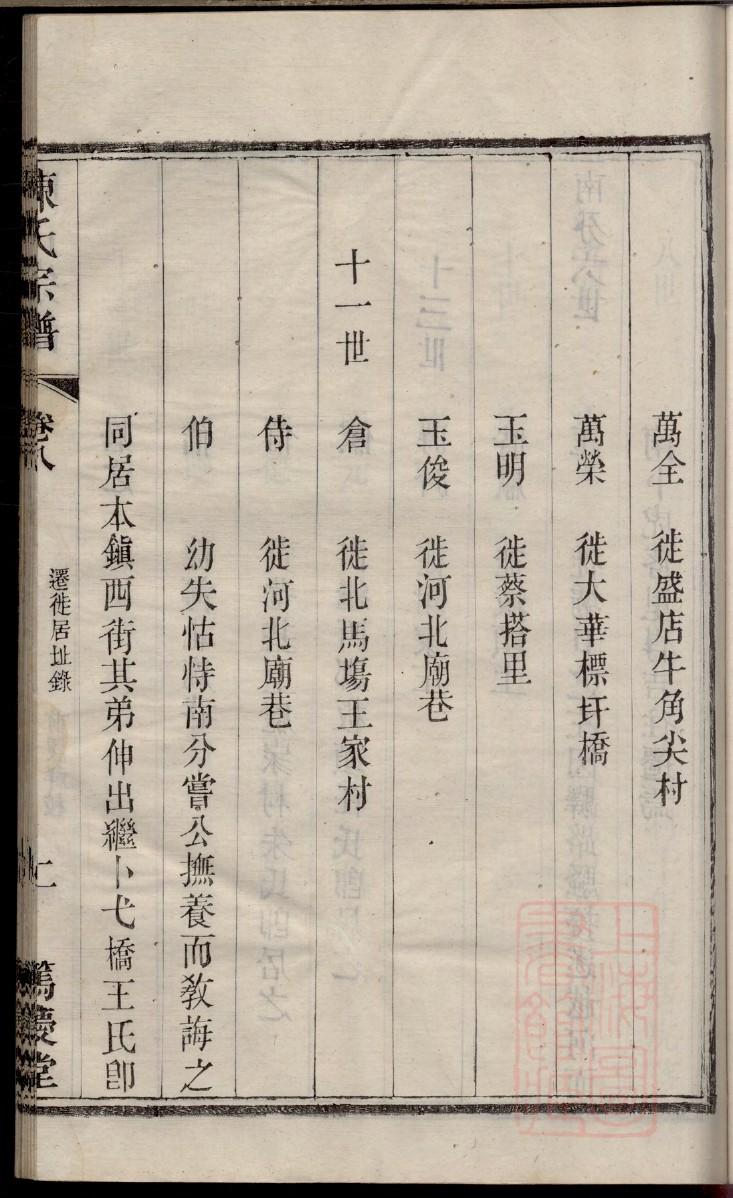 萬全 徙盛店牛角尖村
萬榮 徙大華標圩橋
玉明 徙蔡搭里
玉俊 徙河北廟巷
十一世 倉 徙北馬塲王家村
侍 徙河北廟巷
伯 幼失怙恃南分嘗公撫養而敎誨之
同居本鎮西街其弟伸出繼卜弋橋王氏卽
陳氏宗譜 卷八 遷徙居址錄 篤慶堂